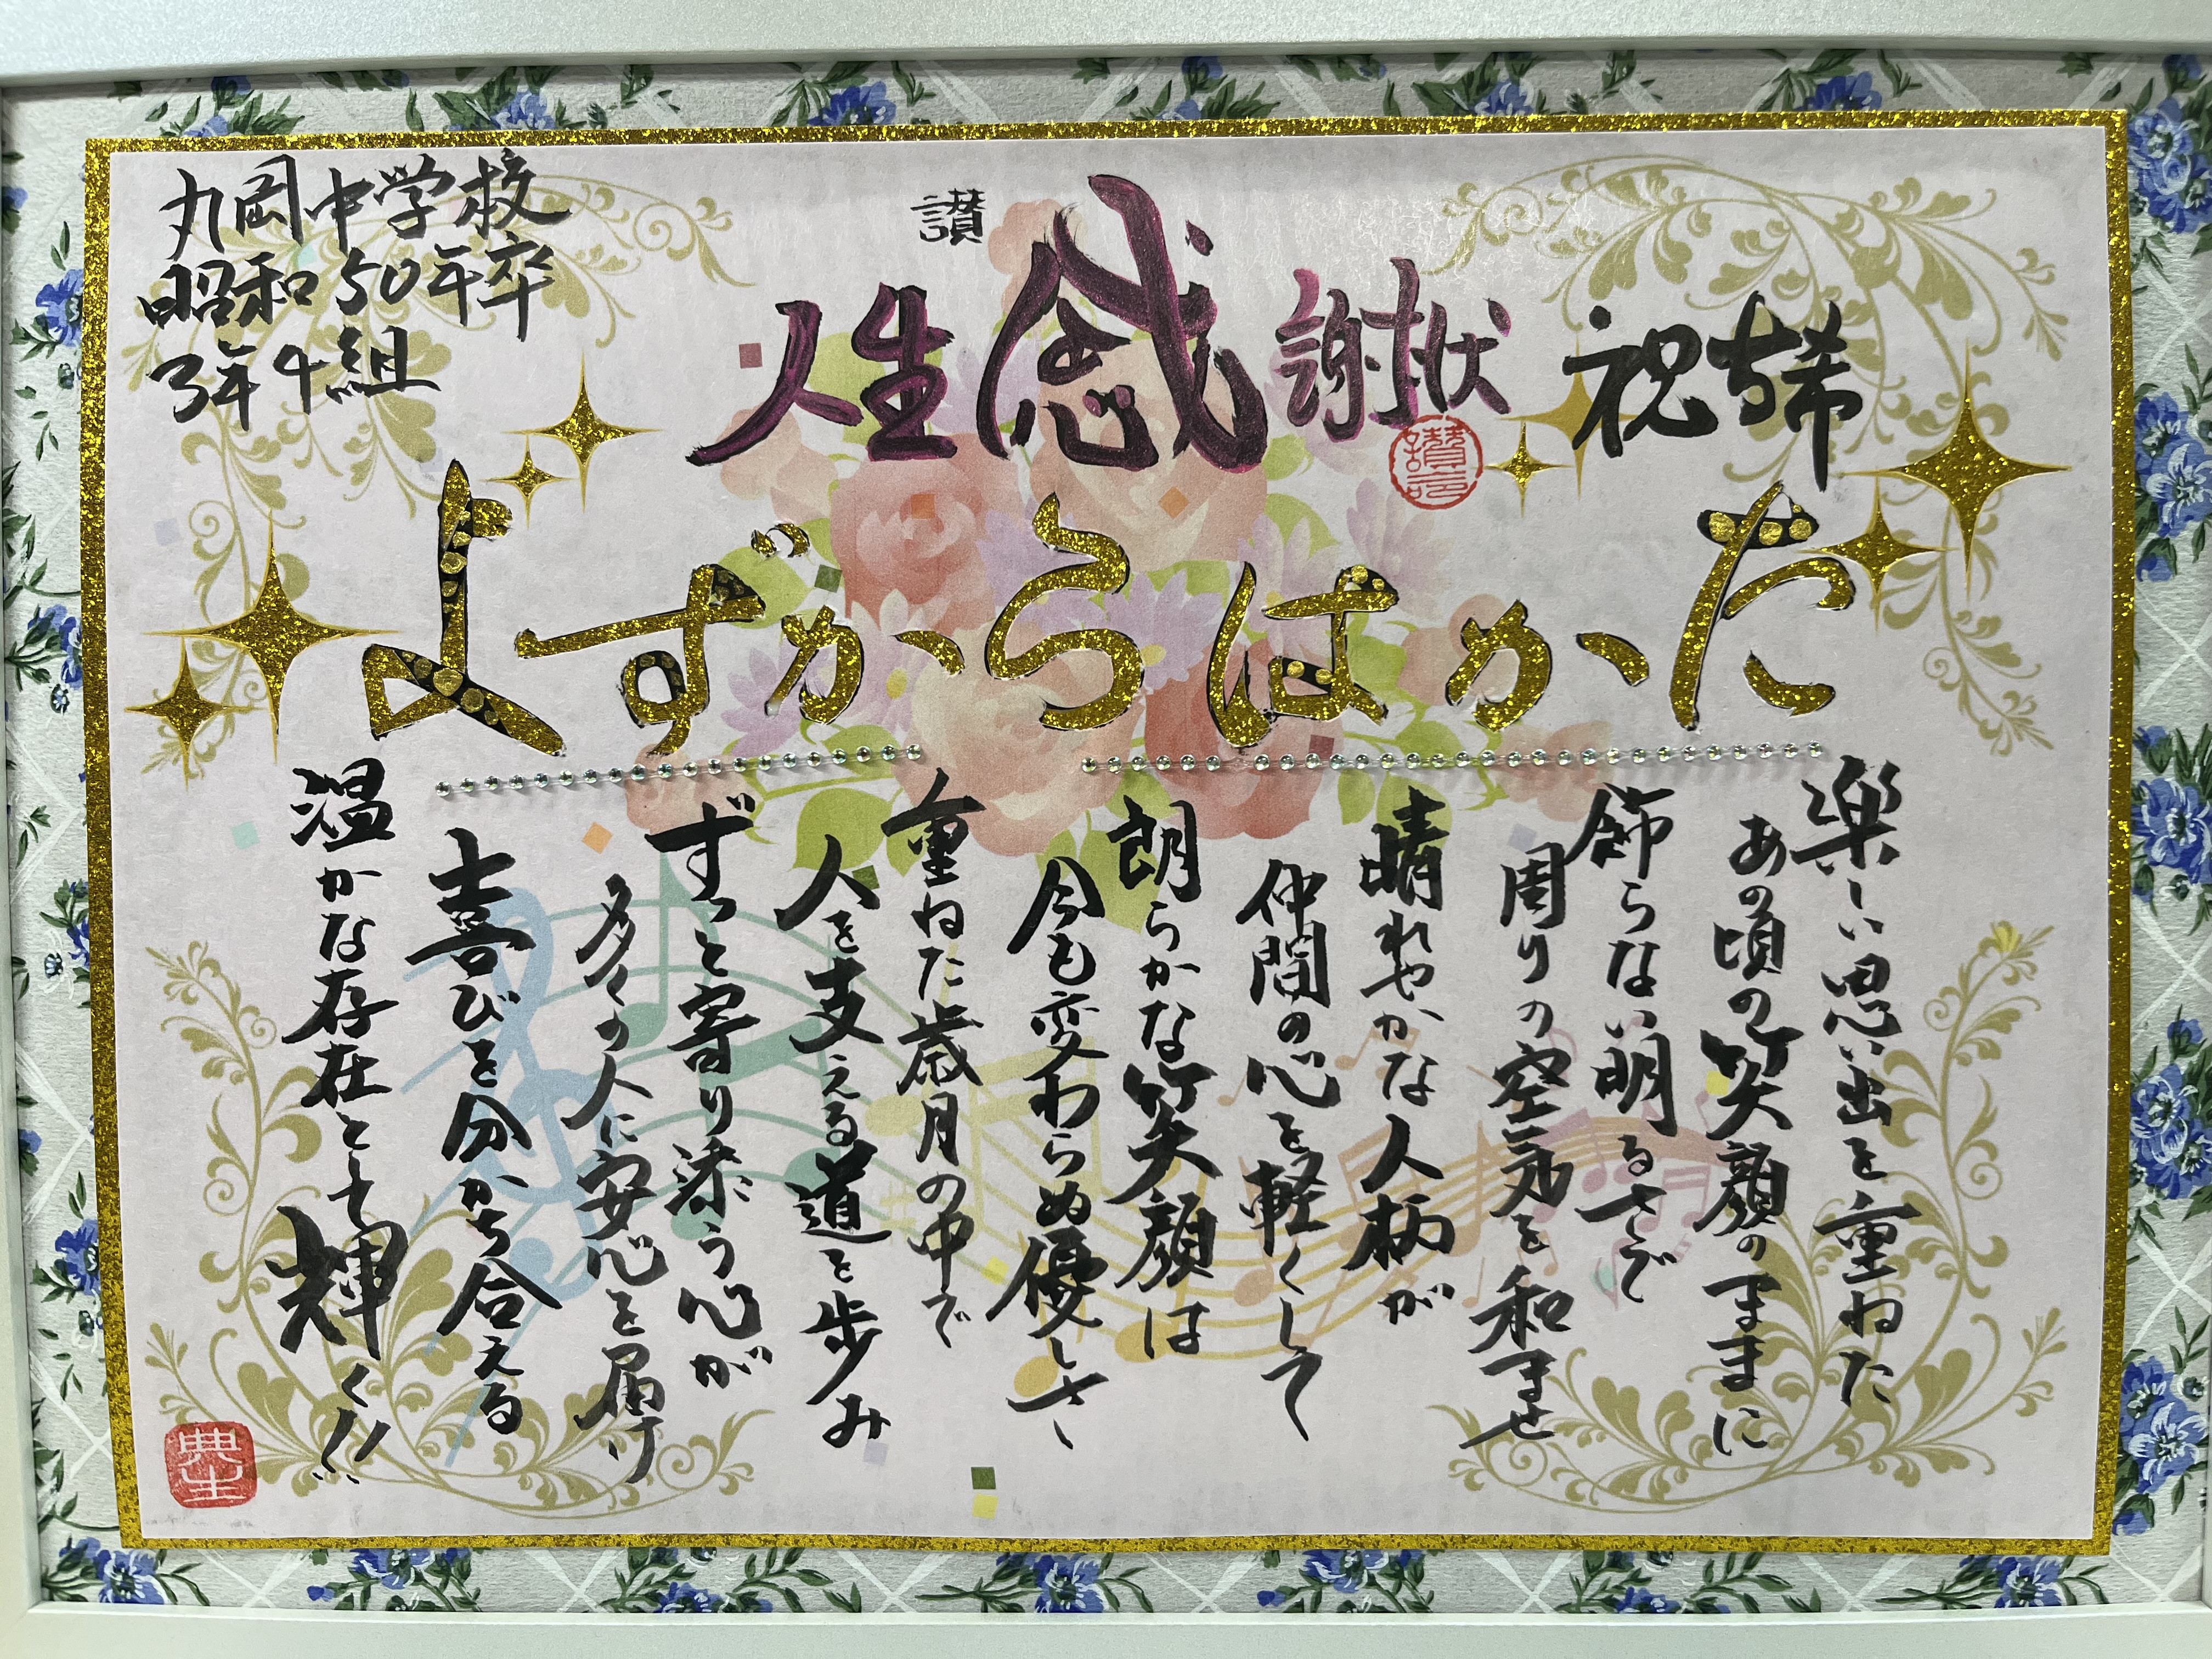 丸岡中学校
昭和50年卒
3年4組
讃
人生感謝状
祝
たかはらかずよ
楽しい思い出を重ねた
あの頃の笑顔のままに
飾らない明るさで
周りの空気を和ませ
晴れやかな人柄が
仲間の心を軽くして
朗らかな笑顔は
今も変わらぬ優しさ
重ねた歳月の中で
人を支える道を歩み
ずっと寄り添う心が
多くの人に安心を届け
喜びを分かち合える
温かな存在として輝く!!
典生